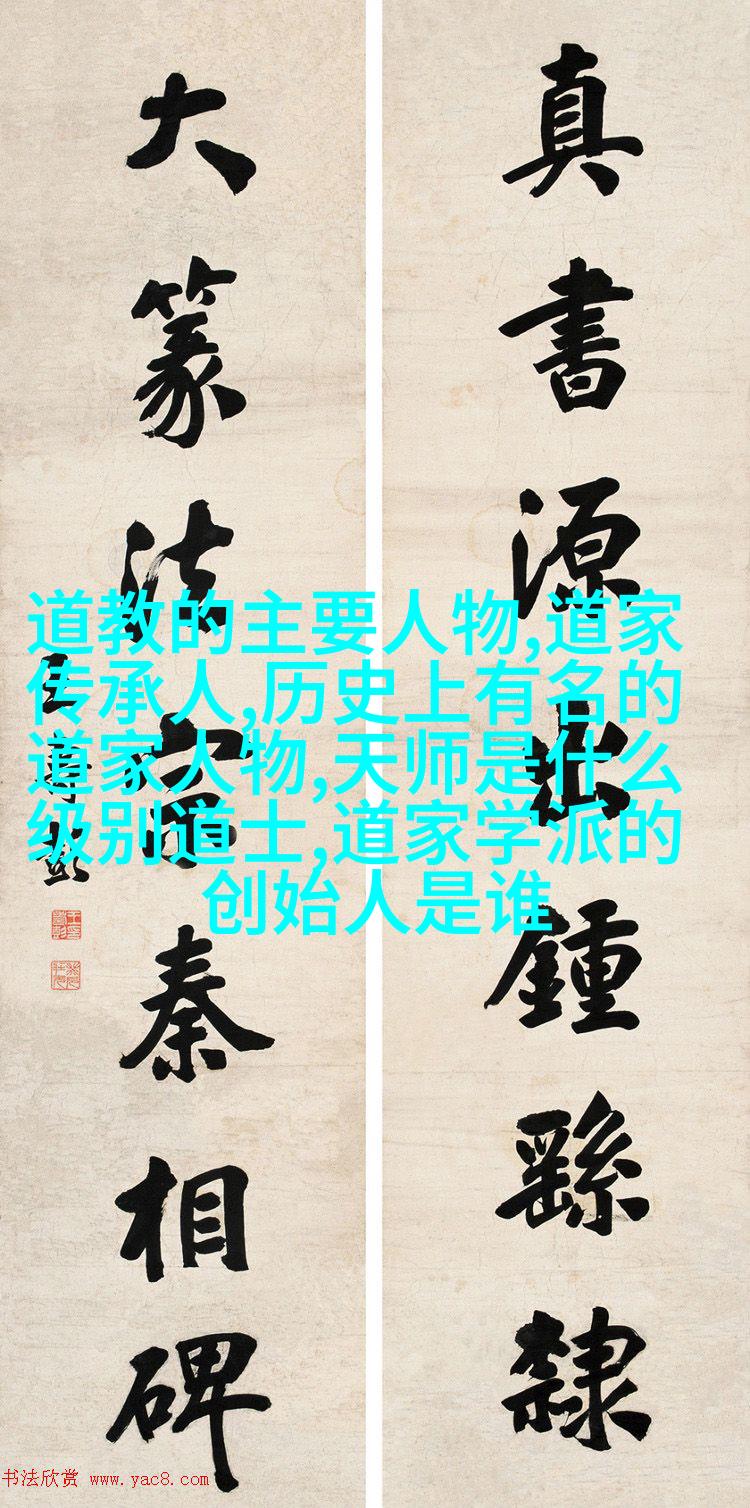 真書源出鍾繇隸
大篆法宗秦相碑
王尊彭
道教的主要人物,道家
传承人,历史上有名的
道家人物,天师是什么
级别道士,道家学派的
创始人是谁
书法欣赏 www.yac8.com